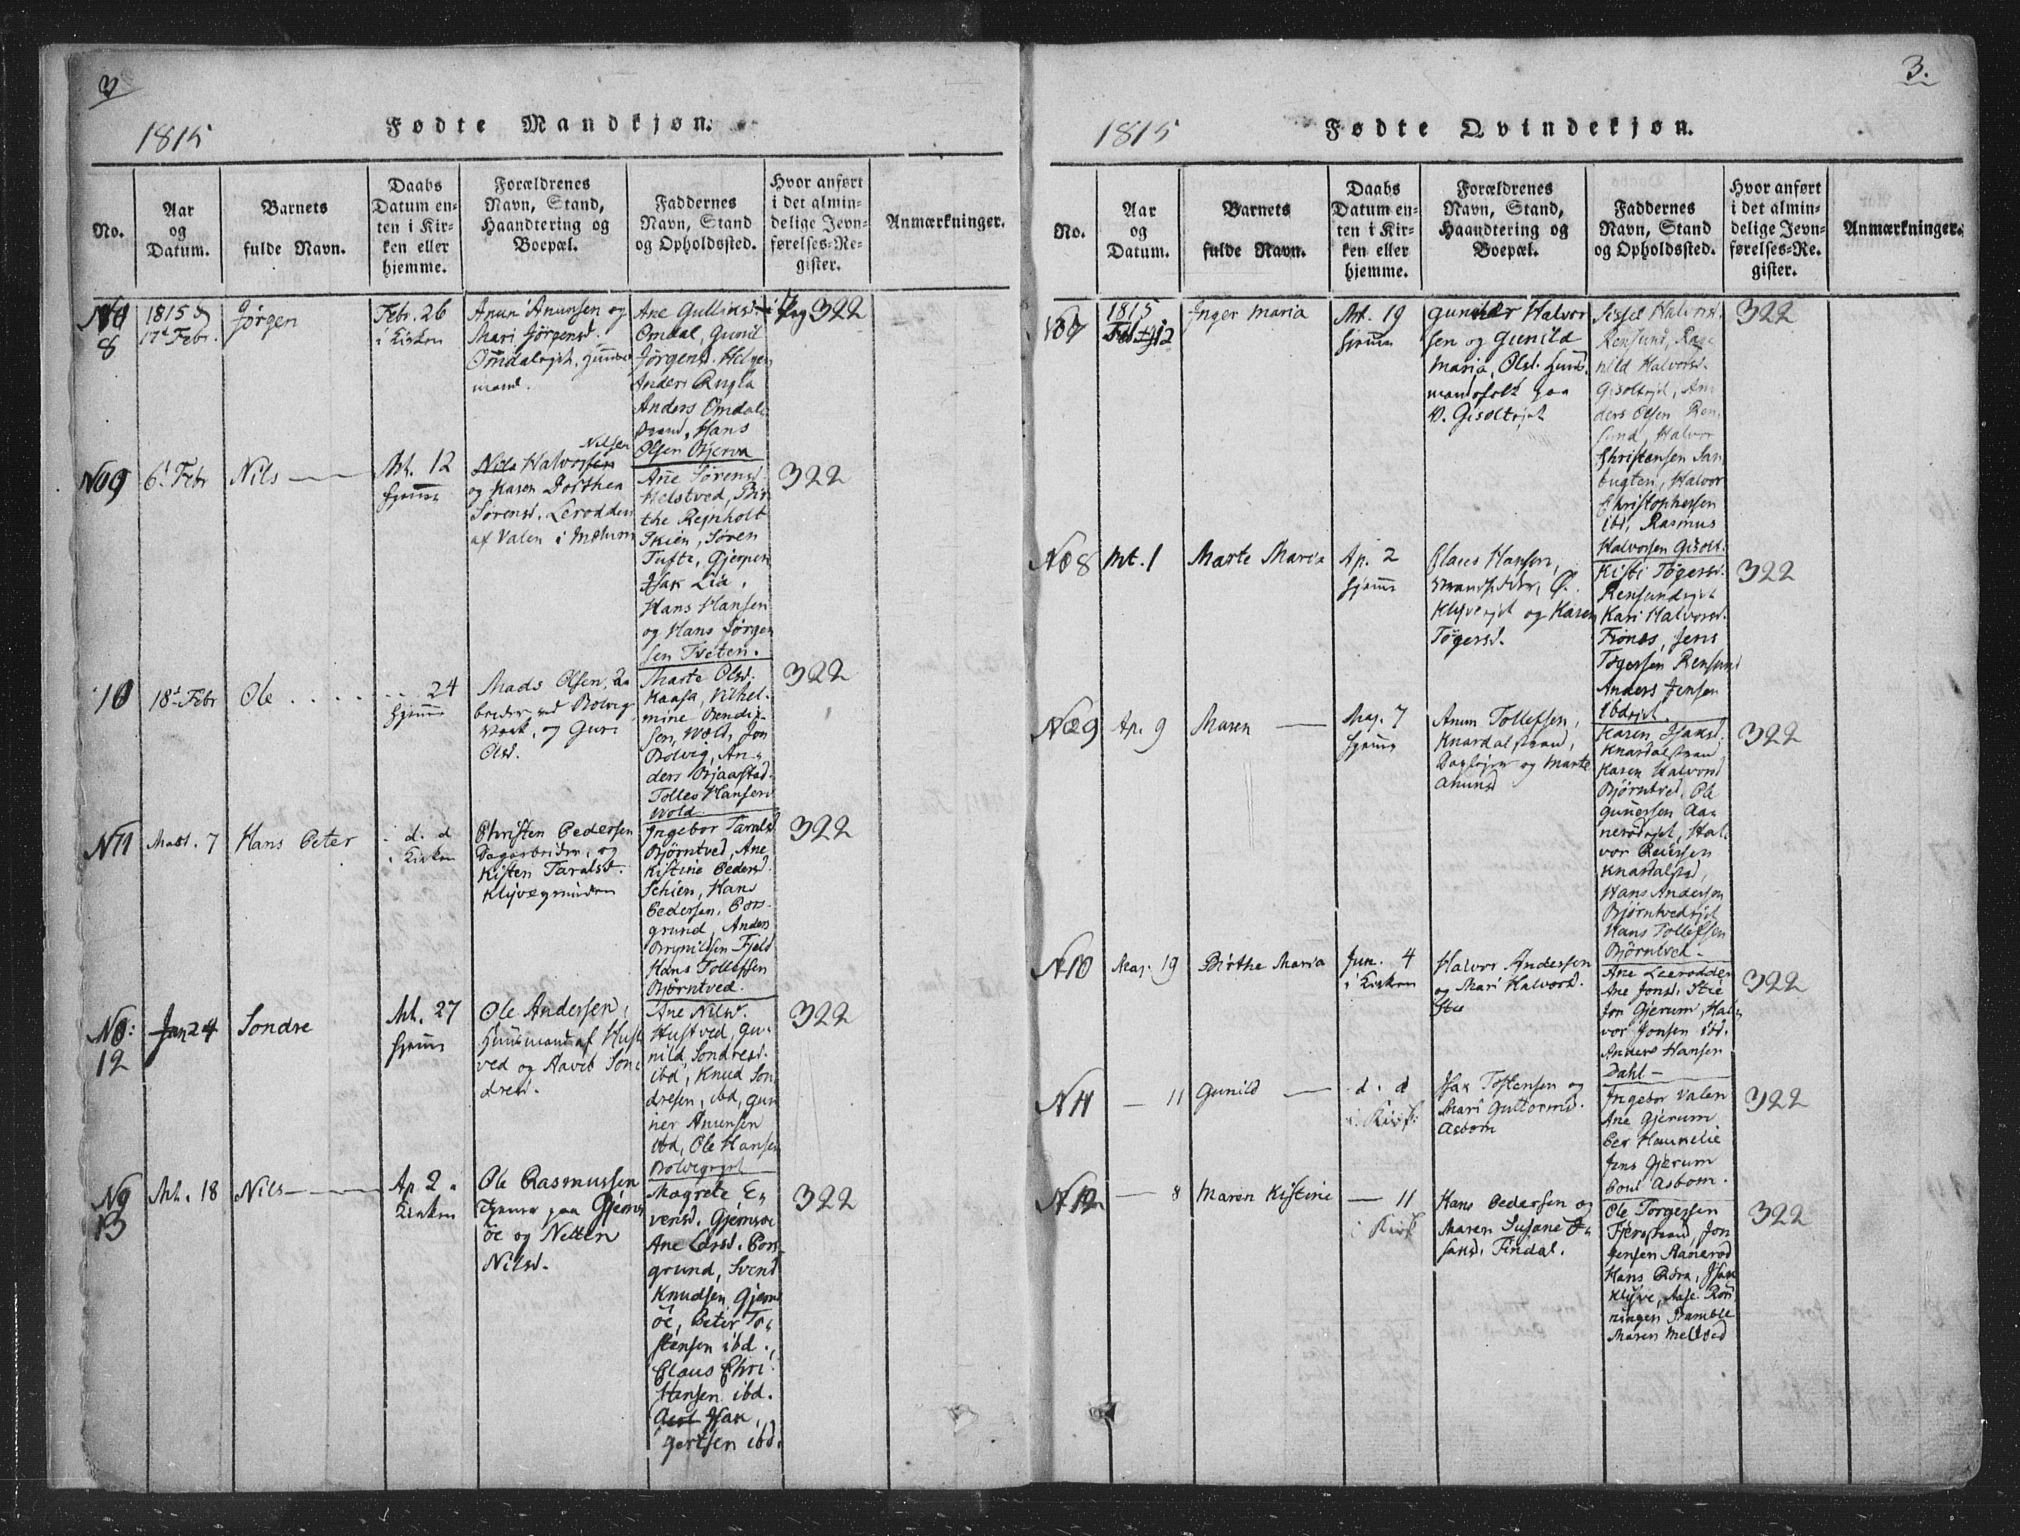 3
1815
Fødte Mandkjøn.
No.
Aar
og
Datum.
Barnets
fulde Navn.
Daabs
Datum en-
ten i Kir-
ken eller
hjemme.
Forældrenes
Navn, Stand,
Haandtering og
Boepæl.
Faddernes
Navn, Stand
og Opholdssted.
Hvor anført
i det almin-
delige Jevn-
førelses-Re-
gister.
Anmærkninger.
8
1815
17de Febr.
Jørgen
Febr. 26
i Kirken
Anun Anunsen og
Mari Jørgensd.
mand.
Ane Gulliksd.
Omdal, Gunil
Jørgensd. Helgen
Anders
Anders Omdal
Hans
Olsen Bjerva
Pag 322
No 9
6t Febr
Nils
Mt. 12
Hjemme
Nilsen
Nils Halvorsen
og Karen Dorthea
Sørensd. Lerodden
af Valen i Melum
Ane Sørensd
Helstved, Bir
the Reinholt
Skien, Søren
Tufte, Gjerpen
Isak Lia,
Hans Hansen
og Hans Jørgen
sen Tveten.
322
10
18t Febr
Ole
24
Hjemme
Mads Olsen,
beider ved Bolvig
Værk, og Guri
Olsd.
Marte Olsd.
Kaasa, Vilhel-
mine Bendix-
sen, Wold, Jon
Bolvig, An-
ders Bjaarstad
Tolles Hansen
Wold.
322
N 11
7
Hans Peter
d. d
i Kirken
Christen Pedersen
Dagarbeider, og
Kisten Taralsd.
Klyvegrunden
Ingebor Taralsd
Bjørntved, Ane
Kistine Pedersd.
Schien, Hans
Pedersen, Pors-
grund, Anders
Brynildsen Fjeld
Hans Tollefsen
Bjørntved.
322
No:
12
Jan 24
Sondre
Mt. 27
Hjemme
Ole Andersen,
Huusmand af Hust
ved og Aavet Son
dresd.
Ane Nilsd.
Hustved, Gu-
nild Sondresd.
ibd, Knud Son
dresen, ibd, Gun
ner Anunsen
ibd, Ole Hansen
322
No
13
Mt. 18
Nils
Ap. 2
Kirken
Ole Rasmussen
paa Gjems
øe og Netten
Nilsd.
Magrete E-
vensd. Gjemsøe
Ane Larsd. Pors-
grund, Svend
Knudsen Gjems
øe, Peter To-
stensen ibd.,
Claus Chri-
stensen ibd.
Isak
Gertsen ibd.
322
3.
1815
Fødte Qvindekjøn.
No.
Aar
og
Datum.
Barnets
fulde Navn.
Daabs
Datum en-
ten i Kir-
ken eller
hjemme.
Forældrenes
Navn, Stand,
Haandtering og
Boepæl.
Faddernes
Navn, Stand
og Opholdssted.
Hvor anført
i det almin-
delige Jevn-
førelses-Re-
gister.
Anmærkninger.
No 7
1815
12
Inger Maria
Mt. 19
Hjemme
Gunder Halvor
sen og Gunild
Maria Olsd. Huus-
mandsfolk paa
Sissel Halvorsd.
Rensund, Rag
nild Halvorsd.
An
ders Olsen Ren
sund, Halvor
Christensen San
bugten, Halvor
Christophersen
ibd, Rasmus
Halvorsen Gisolt.
322
No 8
Mt. 1
Marte Maria
Ap. 2
Hjemme
Claus Hansen,
Strandsidder, Ø.
Klyveejet og Karen
Tøgersd.
Kisti Tøgersd.
Rensundejet
Kari Halvorsd.
Jens
Tøgersen Rensund
Anders Jensen
322
No 9
Ap. 9
Maren
Maj. 7
Hjemme
Anun Tollefsen,
Knardalstrand,
og Marte
Anunsd
Karen Isaksd.
Knardalstrand
Karen Halvorsd
Bjørntved, Ole
Gunersen Aa-
nerødejet, Hal-
vor Reiersen
Knardalstad,
Hans Andersen
Bjørntvedejet
Hans Tollefsen
Bjørntved.
322
N 10
Maj. 19
Birthe Maria
Jun. 4
i Kirken
Halvor Andersen
og Mari Halvorsd.
Stie
Ane Leerodden
Ane Jonsd. Stie
Jon Gjerum, Hal-
vor Jonsen ibd.
Anders Hansen
Dahl
322
N 11
11
Gunild
d. d
i Kirk:
Isak Tostensen og
Mari Guttormsd.
Asbom
Ingebor Valen
Ane Gjerum
Per Haukelie
Jens Gjerum
Poul Asbom.
322
N 12
8
Maren Kistine
11
i Kirk
Hans Pedersen og
Maren Susane I-
saksd. Tindal.
Ole Torgersen
Jon
Jensen Aanerød
Hans Isak
Klyve, Aase Røn
ningen Bamble
Maren Meltved
322